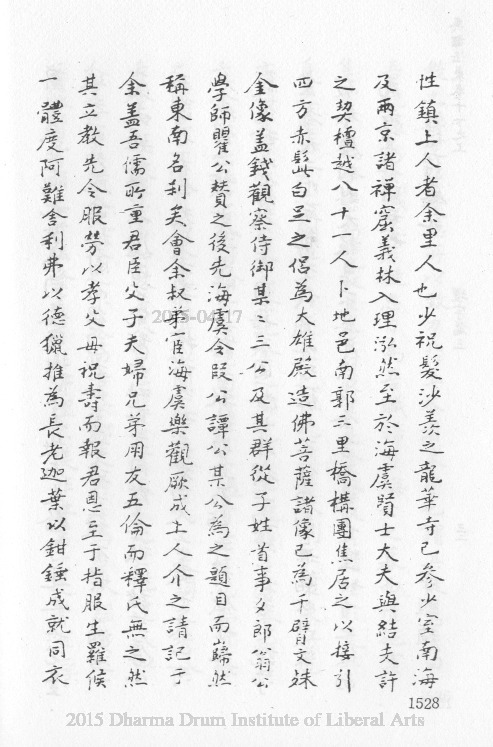 性鎮上人者余里人也少祝髮沙羨之龍華寺已參少室南海
及兩京諸禪窟義林入理泓然至於海虞賢士大夫與結支許
之契檀越八十一人卜地邑南郭三里橋構團焦居之以接引
四方赤髭白足之侶為大雄殿造佛菩薩諸像已為千臂文殊
金像蓋錢觀察侍御某〻三公及其群從子姓首事文郎翁公
學師瞿公贊之後先海虞令段公譚公某公為之題目而巋然
稱東南名剎矣會余叔弟宦海虞樂觀厥成上人介之請記于
余蓋吾儒所重君臣父子夫婦兄弟朋友五倫而釋氏無之然
其立教先令服勞以孝父母祝壽而報君恩至于指腹生羅侯
一體度阿難舍利弗以德獵推為長老迦葉以鉗錘成就同衣
2015-04-17
1528
2015 Dharma Drum Institute of Liberal Arts